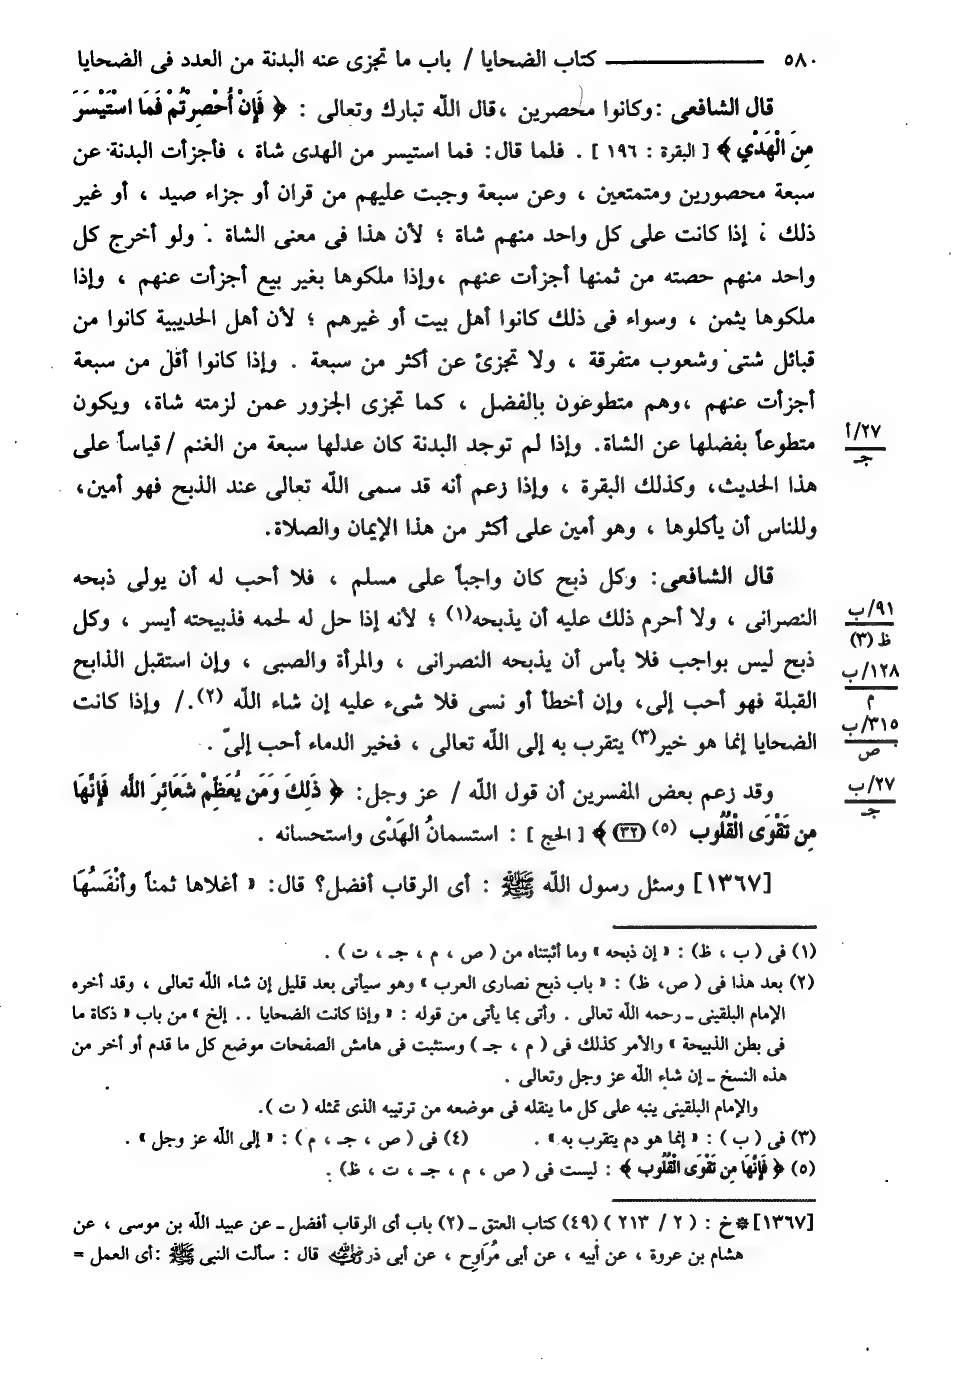 ٥٨٠ ـــــــــــ كتاب الضحايا / باب ما تجزى عنه البدنة من العدد فى الضحايا
قال الشافعى : وكانوا محصرين ، قال الله تبارك وتعالى : ﴿ فَإِنْ أُحْصِرْتُمْ فَمَا اسْتَيْسَرَ
مِنَ الْهَدْيِ ﴾ [ البقرة : ١٩٦ ] . فلما قال : فما استيسر من الهدى شاة ، فأجزأت البدنة عن
سبعة محصورين ومتمتعين ، وعن سبعة وجبت عليهم من قران أو جزاء صيد ، أو غير
ذلك ، إذا كانت على كل واحد منهم شاة ؛ لأن هذا فى معنى الشاة . ولو أخرج كل
واحد منهم حصته من ثمنها أجزأت عنهم ، وإذا ملكوها بغير بيع أجزأت عنهم ، وإذا
ملكوها بثمن ، وسواء فى ذلك كانوا أهل بيت أو غيرهم ؛ لأن أهل الحديبية كانوا من
قبائل شتى وشعوب متفرقة ، ولا تجزئ عن أكثر من سبعة . وإذا كانوا أقل من سبعة
أجزأت عنهم ، وهم متطوعون بالفضل ، كما تجزى الجزور عمن لزمته شاة، ويكون
متطوعاً بفضلها عن الشاة. وإذا لم توجد البدنة كان عدلها سبعة من الغنم / قياساً على
٢٧/أ
جـ
هذا الحديث، وكذلك البقرة ، وإذا زعم أنه قد سمى الله تعالى عند الذبح فهو أمين،
وللناس أن يأكلوها ، وهو أمين على أكثر من هذا الإيمان والصلاة.
قال الشافعى : وكل ذبح كان واجباً على مسلم ، فلا أحب له أن يولى ذبحه
النصرانى ، ولا أحرم ذلك عليه أن يذبحه(١) ؛ لأنه إذا حل له لحمه فذبيحته أيسر ، وكل
٩١/ب
ظ (٣)
ذبح ليس بواجب فلا بأس أن يذبحه النصرانى ، والمرأة والصبى ، وإن استقبل الذابح
١٢٨/ب
م
القبلة فهو أحب إلى، وإن أخطأ أو نسى فلا شىء عليه إن شاء الله (٢)./ وإذا كانت
٣١٥/ب
ص
الضحايا إنما هو خير(٣) يتقرب به إلى الله تعالى ، فخير الدماء أحب إلىّ .
وقد زعم بعض المفسرين أن قول الله / عز وجل : ﴿ ذَلِكَ وَمَن يُعَظِّمْ شَعَائِرَ اللَّهِ فَإِنَّهَا
٢٧/ب
جـ
مِن تَقْوَى الْقُلُوبِ (٥) (٣٢) ﴾ [ الحج ] : استسمانُ الهَدْى واستحسانه .
[١٣٦٧] وسئل رسول الله ﷺ : أى الرقاب أفضل؟ قال: « أغلاها ثمناً وأنْفَسُهَا
(١) فى ( ب ، ظ) : « إن ذبحه » وما أثبتناه من ( ص ، م ، جـ ، ت ) .
(٢) بعد هذا فى ( ص، ظ) : « باب ذبح نصارى العرب » وهو سيأتى بعد قليل إن شاء الله تعالى ، وقد أخره
الإمام البلقينى ـ رحمه الله تعالى . وأتى بما يأتى من قوله : « وإذا كانت الضحايا .. إلخ » من باب « ذكاة ما
فى بطن الذبيحة » والأمر كذلك فى ( م ، جـ ) وسنثبت فى هامش الصفحات موضع كل ما قدم أو أخر من
هذه النسخ ـ إن شاء الله عز وجل وتعالى .
والإمام البلقينى ينبه على كل ما ينقله فى موضعه من ترتيبه الذى تمثله ( ت ).
(٣) فى ( ب ) : « إنما هو دم يتقرب به » . (٤) فى ( ص ، جـ ، م ) : « إلى الله عز وجل » .
(٥) ﴿ فَإِنَّهَا مِن تَقْوَى الْقُلُوبِ ﴾ : ليست فى ( ص ، م ، جـ ، ت ، ظ) .
[١٣٦٧] * خ : ( ٢ / ٢١٣ ) (٤٩) كتاب العتق ـ (٢) باب أى الرقاب أفضل ـ عن عبيد الله بن موسى ، عن
هشام بن عروة ، عن أبيه ، عن أبى مُرَاوِح ، عن أبى ذر رضي الله عنه قال : سألت النبى ﷺ : أى العمل =